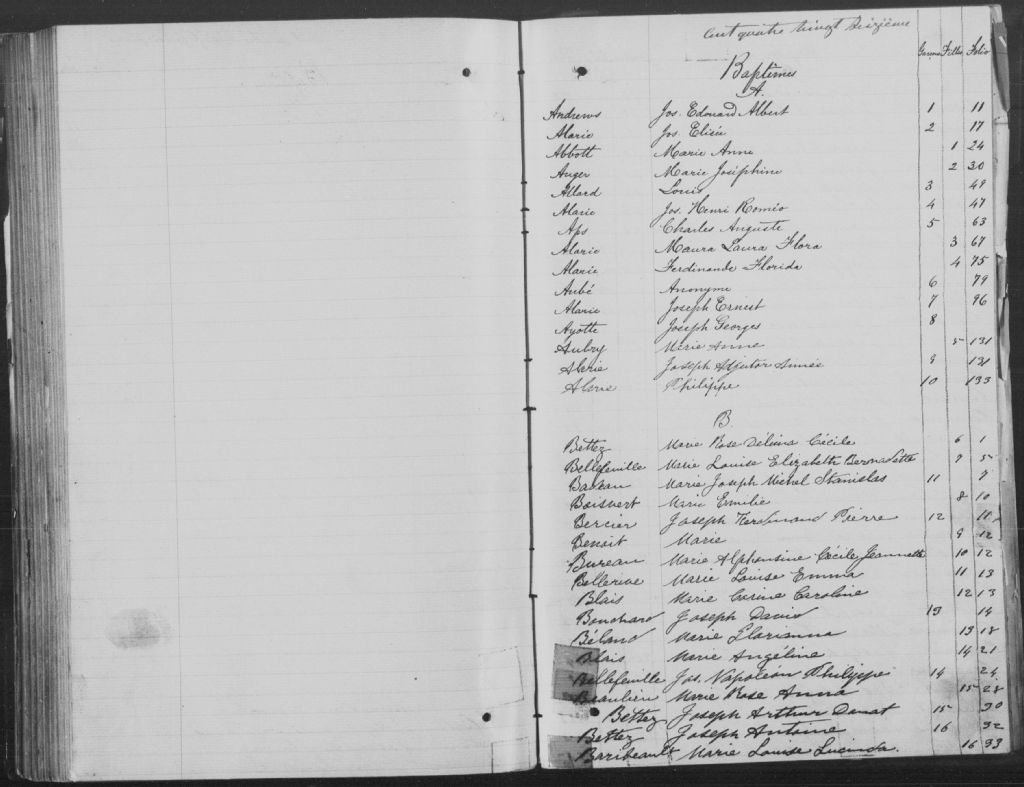 Cent quatre vingt seizième
Garçons Filles Folio
Baptêmes
A.
Andrews Jos. Edouard Albert 1 11
Alarie Jos. Elisée 2 17
Abbott Marie Anne 1 24
Auger Marie Joséphine 2 30
Allard Louis 3 49
Alarie Jos. Henri Roméo 4 47
Aps Charles Auguste 5 63
Alarie Maura Laura Flora 3 67
Alarie Ferdinande Florida 4 75
Aubé Anonyme 6 79
Alarie Joseph Ernest 7 96
Ayotte Joseph Georges 8
Aubry Marie Anne 5 131
Alarie Joseph Adjutor Aimée 9 131
Alarie Philippe 10 133
B.
Bettez Marie Rose Délima Cécile 6 1
Bellefeuille Marie Louise Elizabeth Bernadette 7 5
Badeau Marie Joseph Michel Stanislas 11 7
Boisvert Marie Emilie 8 10
Bercier Joseph Ferdinand Pierre 12 11
Benoit Marie 9 12
Bureau Marie Alphonsine Cécile Jeannette 10 12
Bellerive Marie Louise Emma 11 13
Blais Marie Corinne Caroline 12 13
Bouchard Joseph David 13 14
Béland Marie Florianna 13 18
Blais Marie Angéline 14 21
Bellefeuille Jos. Napoléon Philippe 14 24
Beaulieu Marie Rose Anna 15 28
Bettez Joseph Arthur Donat 15 30
Bettez Joseph Antoine 16 32
Baribeault Marie Louise Lucinda. 16 33